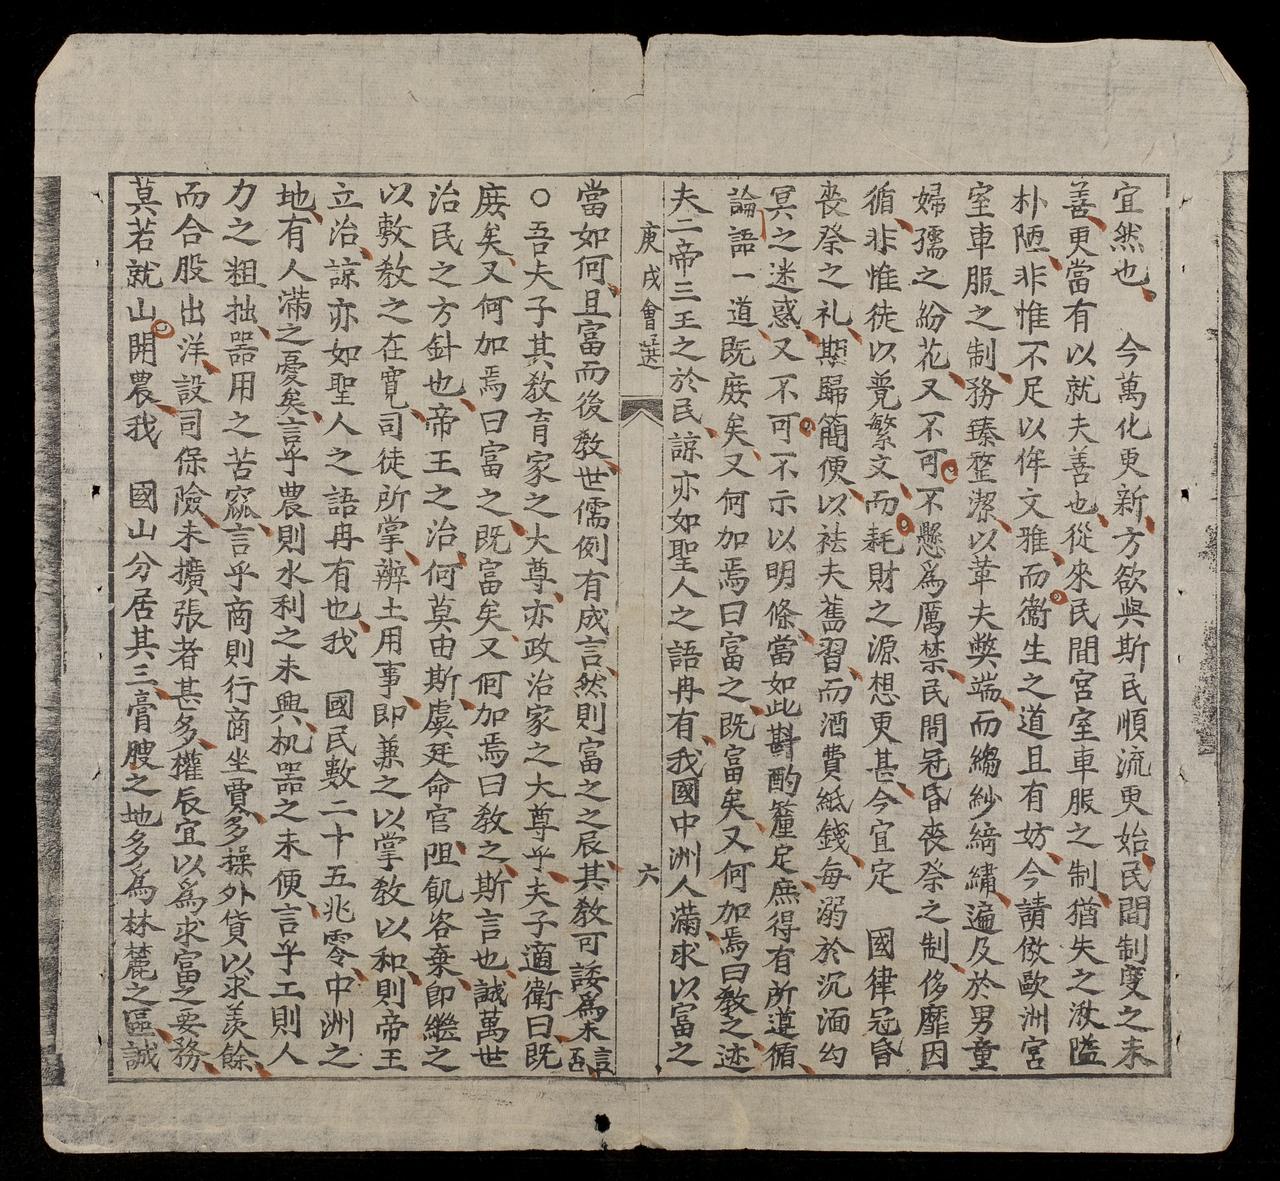 宜然也　今萬化更新方欲與斯民順流更始民間制度之未
善更當有以就夫善也從來民間宮室車服之制猶失之湫隘
朴陋非惟不足以侔文雅而衞生之道且有妨今請倣歐洲宮
室車服之制務臻整潔以革夫弊端而縐紗綺繡遍及於男童
婦孺之紛花又不可不懸爲厲禁民間冠昏喪祭之制侈靡因
循非惟徒以覓繁文而耗財之源想更甚今宜定　國律冠昏
喪祭之礼期歸簡便以祛夫舊習而酒費紙錢每溺於沉湎幻
冥之迷惑又不可不示以明條當如此斟酌釐定庶得有所遵循
論語一道既庶矣又何加焉曰富之既富矣又何加焉曰教之迹
夫二帝三王之於民諒亦如聖人之語冉有我國中洲人滿求以富之
庚戌會選
六
當如何且富而後教世儒例有成言然則富之之辰其教可諉爲未言
○吾夫子其教育家之大尊亦政治家之大尊乎夫子適衛曰既
庶矣又何加焉曰富之既富矣又何加焉曰教之斯言也誠萬世
治民之方針也帝王之治何莫由斯虞廷命官阻飢咨棄即繼之
以敷教之在寬司徒所掌辨土用事即兼之以掌教以和則帝王
立治諒亦如聖人之語冉有也我　國民數二十五兆零中洲之
地有人滿之憂矣言乎農則水利之未興机器之未便言乎工則人
力之粗拙器用之苦窳言乎商則行商坐賈多操外貨以求羨餘
而合股出洋設司保險未擴張者甚多權辰宜以爲求富之要務
莫若就山開農我　國山分居其三膏腴之地多爲林麓之區誠